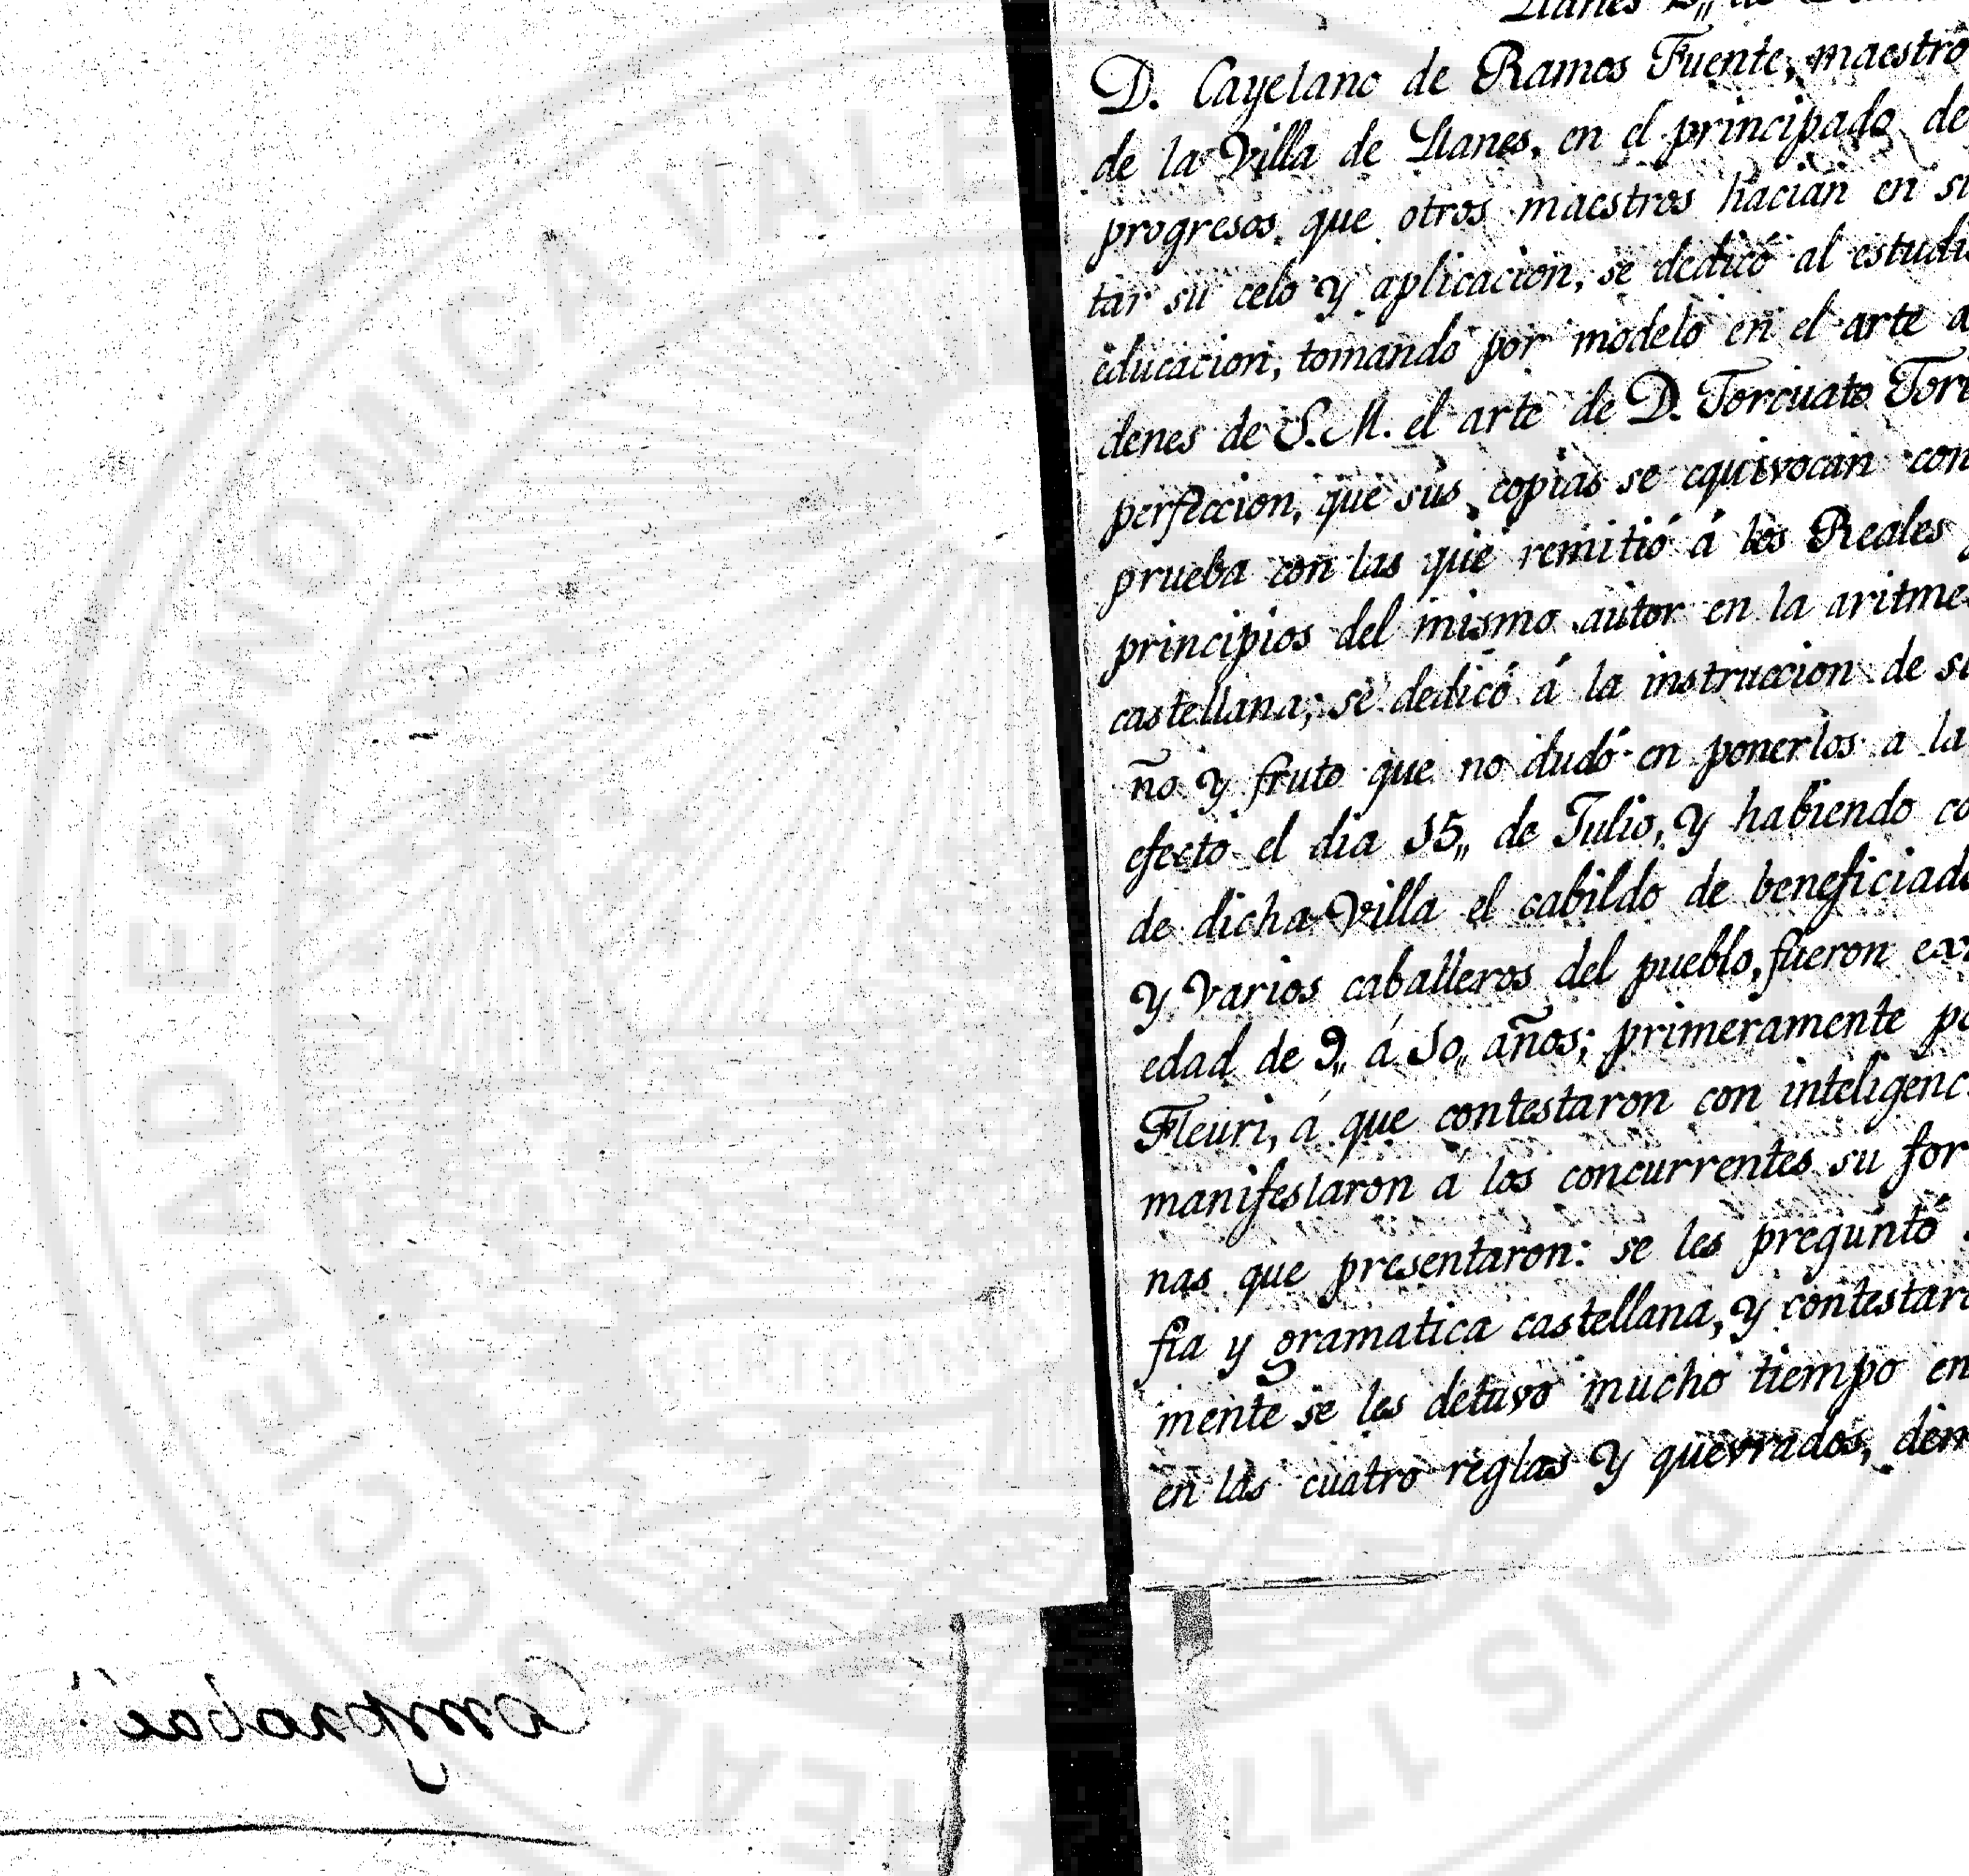 Llanes 2,, de
D. Cayetano de Ramos Fuente, maestro
de la Villa de Llanes, en el principado de
progresos que otros maestros hacian en su
tar su celo y aplicacion, se dedicó al estudi
educacion, tomando por modelo en el arte a
denes de S.M. el arte de D. Torcuato Tor
perfeccion, que sus copias se equivocan con
prueba con las que remitió á los Reales
principios del mismo autor en la aritme
castellana; se dedicó á la instruccion de su
ño y fruto que no dudó en ponerlos a la
efecto el dia 15,, de Julio, y habiendo co
de dicha Villa el cabildo de beneficiado
y varios caballeros del pueblo, fueron ex
edad de 9,, á 10,, años; primeramente po
Fleuri, á que contestaron con inteligenc
manifestaron á los concurrentes su for
nas que presentaron: se les preguntó
fia y gramatica castellana, y contestaro
mente se les detuvo mucho tiempo en
en las cuatro reglas y quevrados, dem